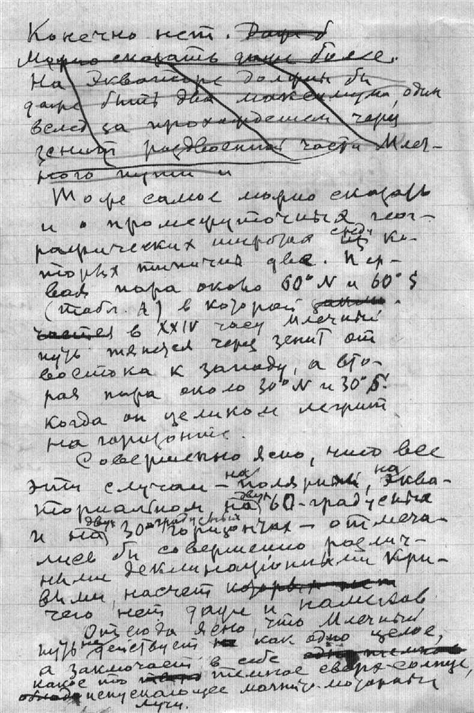 Конечно нет. Даже б
Можно сказать даже более.
На Экваторе должен бы
даже быть два максимума, один
вслед за прохождением через
зенит раздвоенной части Млеч-
ного пути и
То же самое можно сказать
и о промежуточных геог-
рафических широтах среди из ко-
торых типичны две. Пер-
вая пара около 60° N и 60° S
(табл. A) в которой
в XXIV часу Млечный
путь тянется через зенит от
востока к западу, а вто-
рая пара около 30° N и 30° S.
когда он целиком лежит
на горизонте.
Совершенно ясно, что все
эти случаи – на полярн, на эква-
ториальном, на двух 60-градусных
и на двух 30° градусных горизонтах – отмеча-
лись бы совершенно различ-
ными деклинационными кри-
выми, насчет которых нет
чего нет даже и намеков.
Отсюда ясно, что Млечный
путь не действует как одно целое,
а заключает в себе
какое то темное сверх-солнце,
испускающее магнито-моторные
лучи.